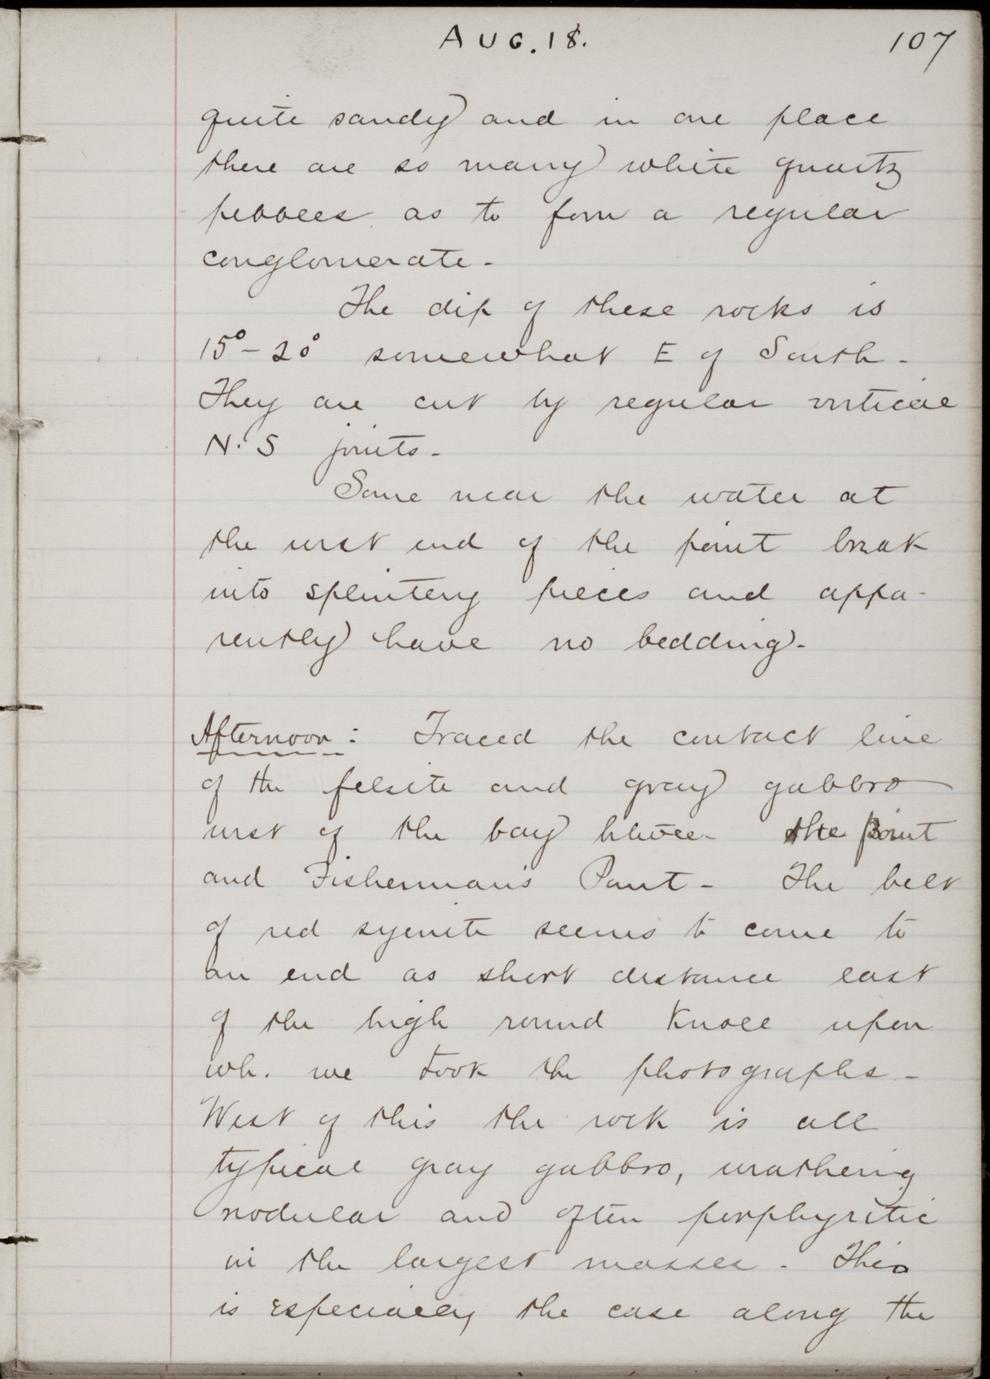 AUG. 18. 107
quite sandy and in one place
there are so many white quartz
pebbles as to form a regular
conglomerate -
The dip of these rocks is
15° - 20° somewhat E of South -
They are cut by regular vertical
N. S joints -
Some near the water at
the west end of the point break
into splintery pieces and appa-
rently have no bedding -
Afternoon: Traced the contact line
of the felsite and gray gabbro
west of the bay between the point
and Fisherman's Point - The belt
of red syenite seems to come to
an end as short distance east
of the high round knoll upon
wh. we took the photographs -
West of this the rock is all
typical gray gabbro, weathering
nodular and often porphyritic
in the largest masses - This
is especially the case along the